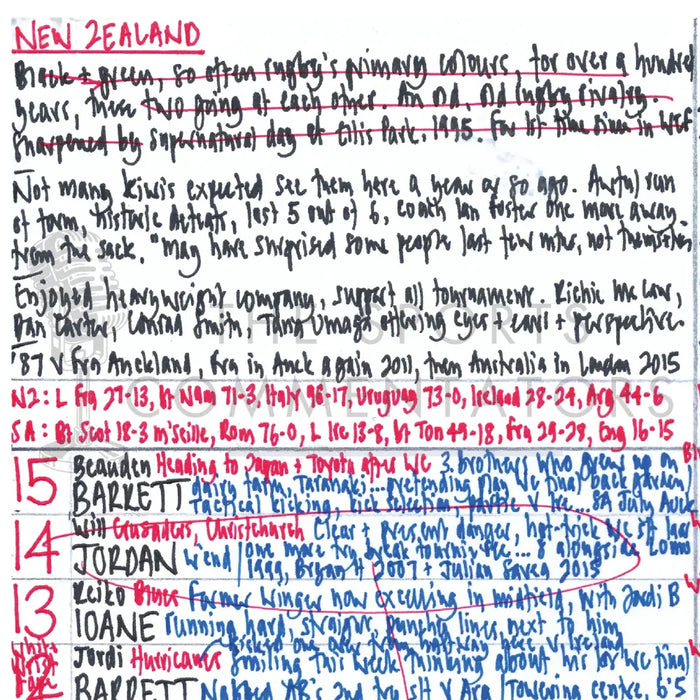 NEW ZEALAND
Black + green, so often rugby's primary colours, for over a hundred
years, these two going at each other. An old, old rugby rivalry.
Sharpened by supernatural day at Ellis Park, 1995. For 1st time since in WCF
Not many kiwis expected see them here a year or so ago. Awful run
of form, historic defeats, lost 5 out of 6, coach Ian Foster one more away
from the sack. "May have surprised some people last few mths, not themselves
Enjoyed heavyweight company, support all tournament. Richie McCaw,
Dan Carter, Conrad Smith, Tana Umaga offering eyes + ears + perspective
'87 v Fra Auckland, Fra in Auck again 2011, then Australia in London 2015
THE SPORTS
COMMENTATORS
NZ: L Fra 27-13, bt Nam 71-3, Italy 96-17, Uruguay 73-0, Ireland 28-24, Arg 44-6
SA: Bt Scot 18-3 m'seille, Rom 76-0, L Ire 13-8, bt Ton 49-18, Fra 29-28, Eng 16-15
15 Beauden Heading to Japan + Toyota after WC 3 brothers who grew up on
BARRETT dairy farm, Taranaki... pretending play WC final back garden
tactical kicking, kick selection, v Ire... SA July Auck
14 Will Crusaders, Christchurch Clear + present danger, hat-trick WC sf last
JORDAN w'end / one more try break tourn rec... 8 alongside Lomu
1999, Bryan H 2007 + Julian Savea 2015
13 Rieko Blues Former winger now excelling in midfield, with Jordi B
IOANE running hard, straight, punchy lines, next to him
Jordi Hurricanes kicked one over from halfway here v Ireland
smiling this week thinking about his for WC final
BARRETT Nabbed AB's 2nd try sf v Arg / Towering centre, 6'5